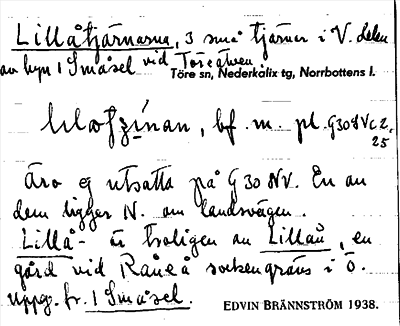 Lillåtjärnarna, 3 små tjärnar i V. delen
av byn 1 Småsel vid Töreälven
Töre sn, Nederkalix tg, Norrbottens l.
bf. m. pl. G30 NV c 2,
25
Äro ej utsatta på G 30 NV. En av
dem ligger N. om landsvägen.
Lillå- är troligen av Lillån, en
gård vid Råneå sockengräns i Ö.
Uppg. fr. 1 Småsel.
EDVIN BRÄNNSTRÖM 1938.